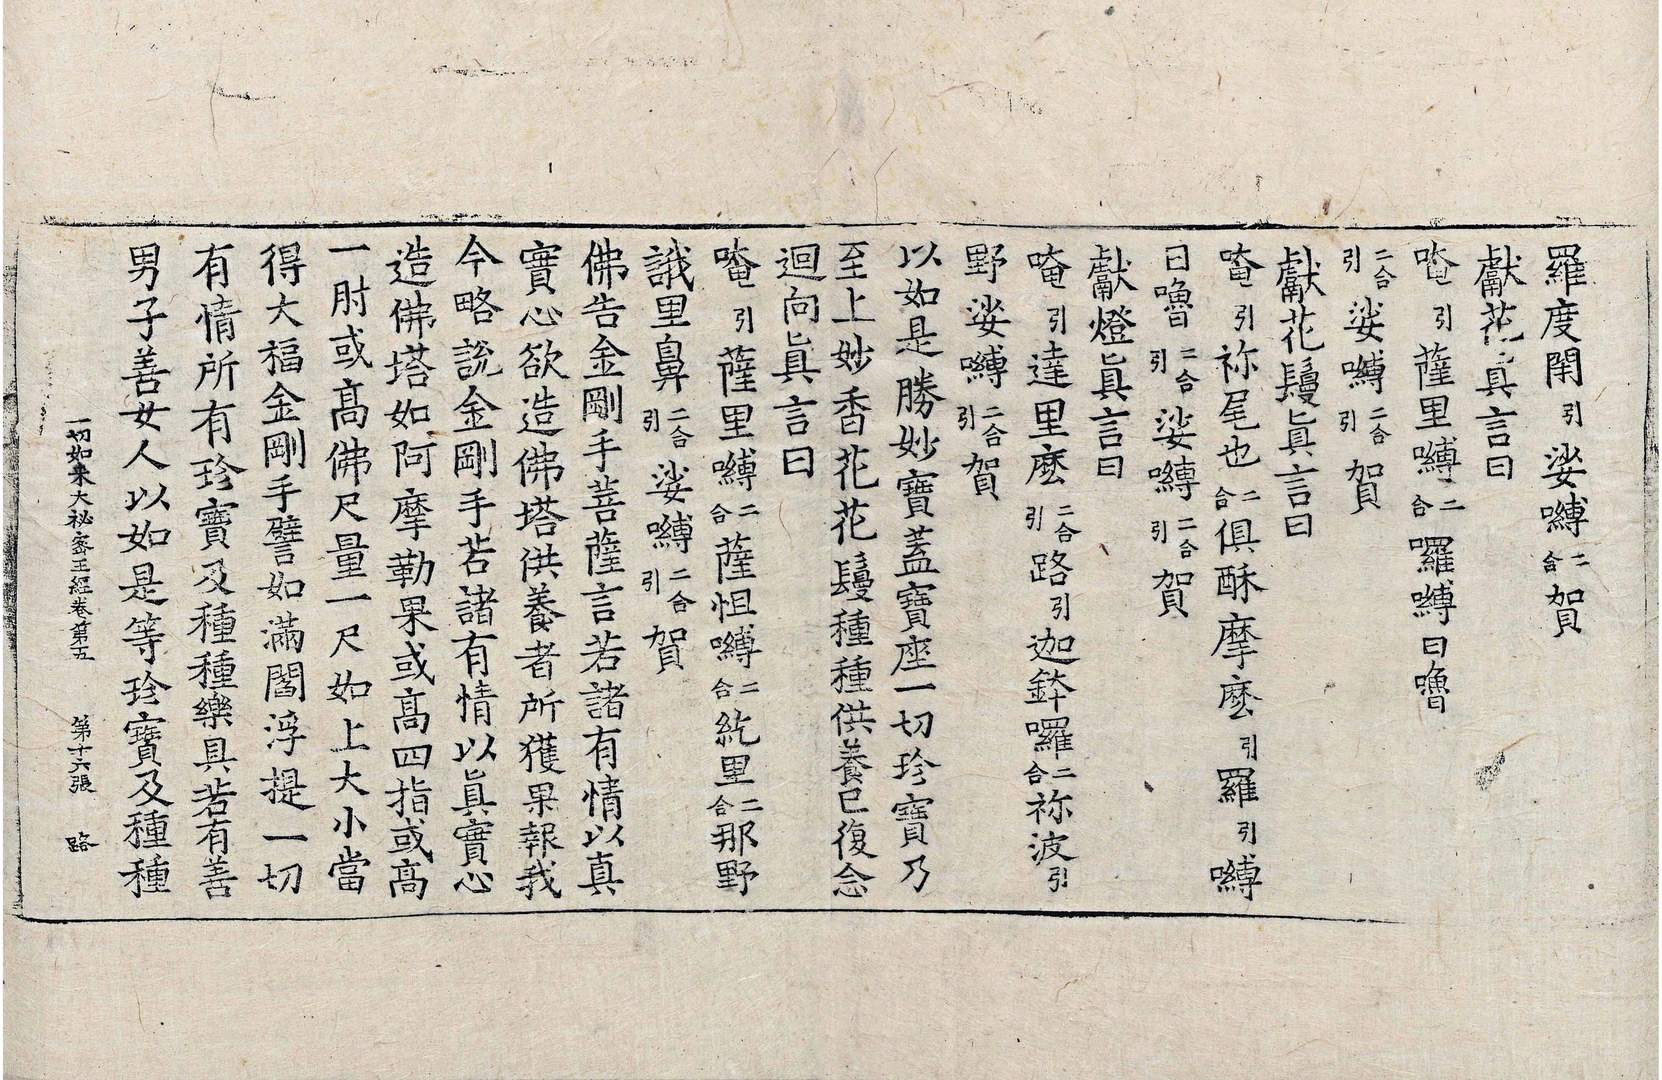 羅度閇引娑嚩二合賀
獻花真言曰
唵引薩里嚩二合囉嚩曰嚕
二合引娑嚩二合引賀
獻花鬘眞言曰
唵引祢尾也二合俱酥摩麽引羅引嚩
曰嚕二合引娑嚩二合引賀
獻燈眞言曰
唵引達里麽二合引路引迦鉢囉二合祢波引
野娑嚩二合引賀
以如是勝妙寶蓋寶座一切珍寶乃
至上妙香花花鬘種種供養已復念
迴向眞言曰
唵引薩里嚩二合薩怛嚩二合紇里二合那野
誐里鼻二合引娑嚩二合引賀
佛告金剛手菩薩言若諸有情以真
實心欲造佛塔供養者所獲果報我
今略說金剛手若諸有情以眞實心
造佛塔如阿摩勒果或高四指或高
一肘或高佛尺量一尺如上大小當
得大福金剛手譬如滿閻浮提一切
有情所有珍寶及種種樂具若有善
男子善女人以如是等珍寶及種種
一切如来大祕密王經卷第五 第十六張 路